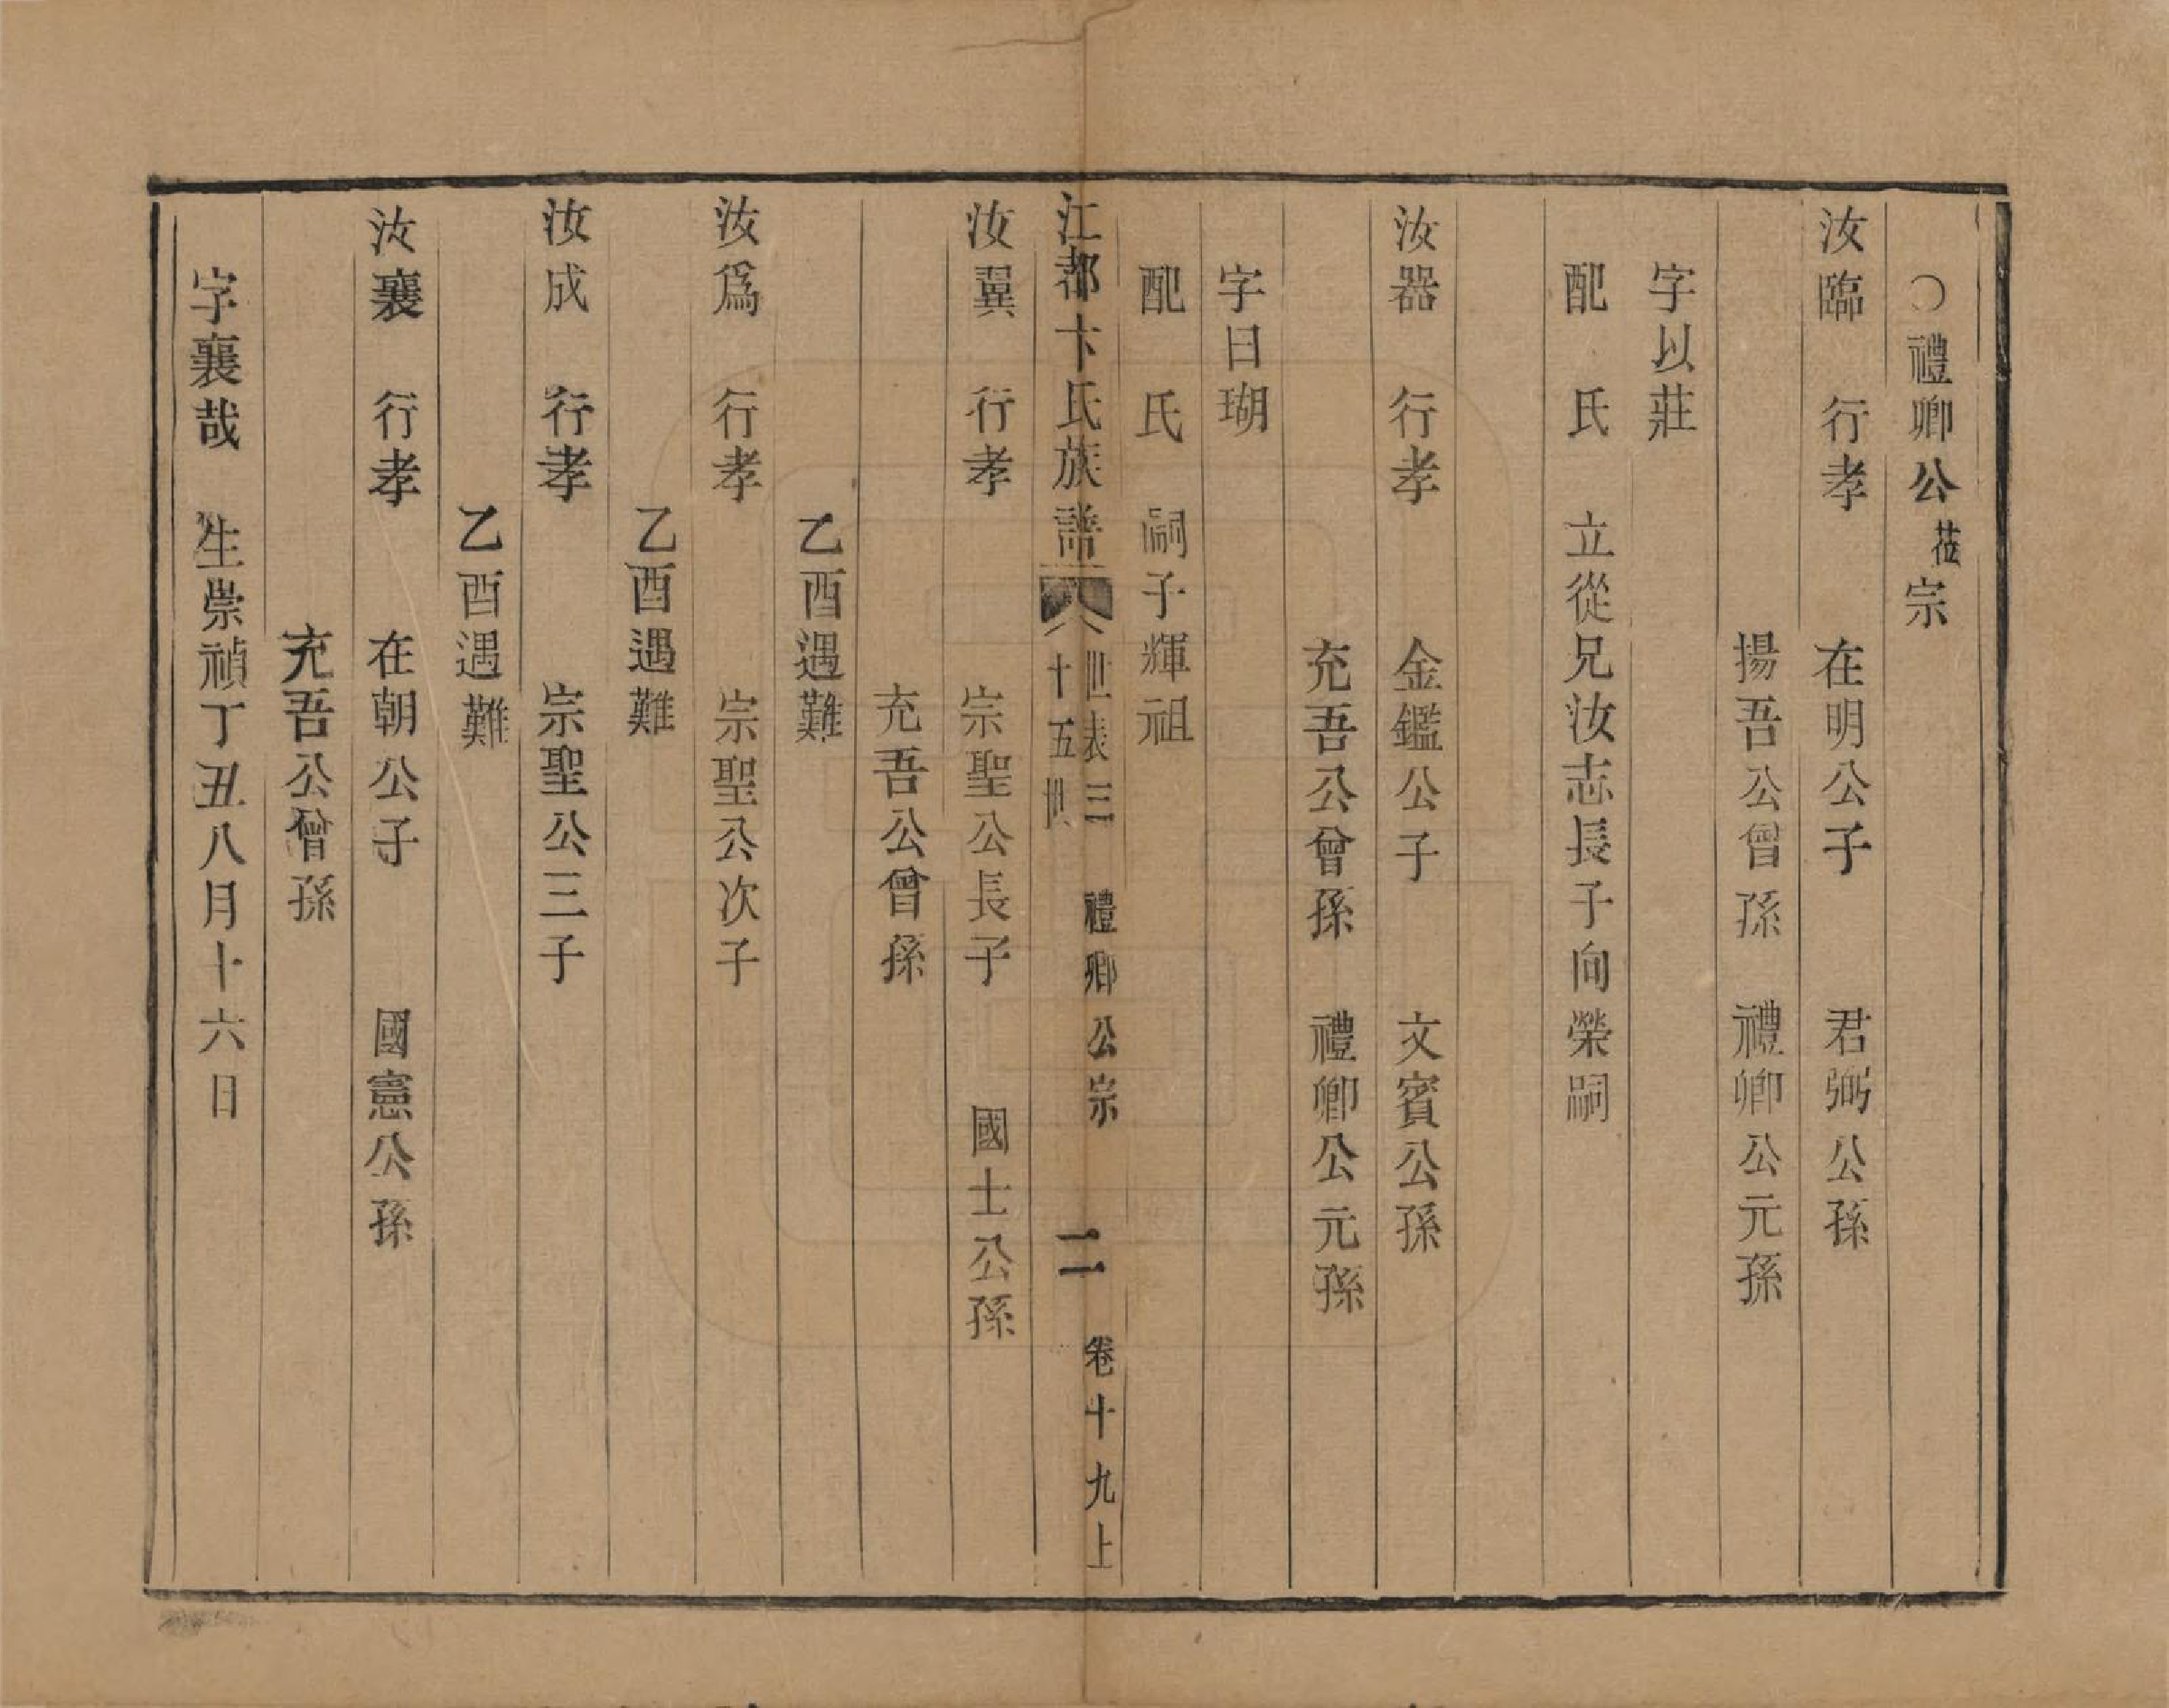 ○禮卿公菈宗
汝臨 行孝 在明公子 君弼公孫
揚吾公曾孫 禮卿公元孫
字以莊
配 氏 立從兄汝志長子向榮嗣
汝器 行孝 金鑑公子 文賓公孫
充吾公曾孫 禮卿公元孫
字曰瑚
配 氏 嗣子輝祖
江都卞氏族譜 世表三 十五世 禮卿公宗 二 卷十九上
汝翼 行孝 宗聖公長子 國士公孫
充吾公曾孫
乙酉遇難
汝爲 行孝 宗聖公次子
乙酉遇難
汝成 行孝 宗聖公三子
乙酉遇難
汝襄 行孝 在朝公子 國憲公孫
充吾公曾孫
字襄哉 生崇禎丁丑八月十六日